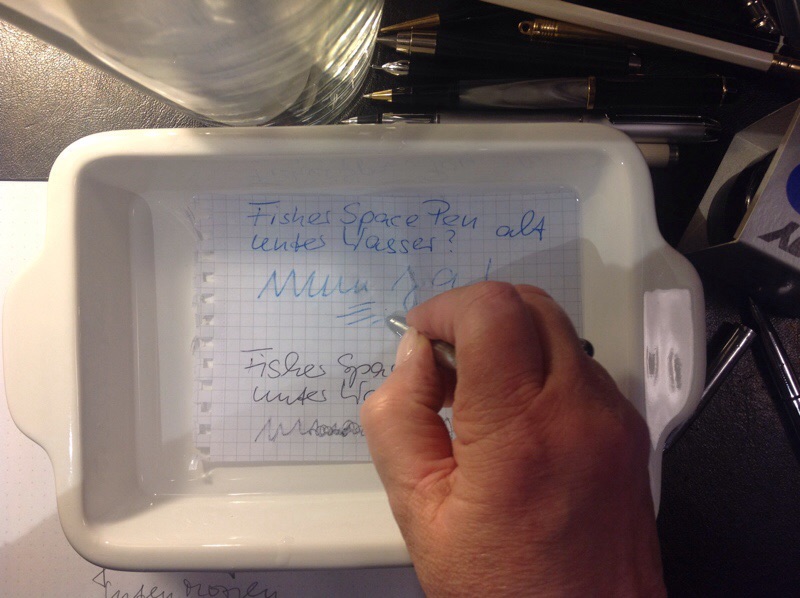 Fisher Space Pen alt
unter Wasser?
Nun ja!
Fisher Spac
unter Wa